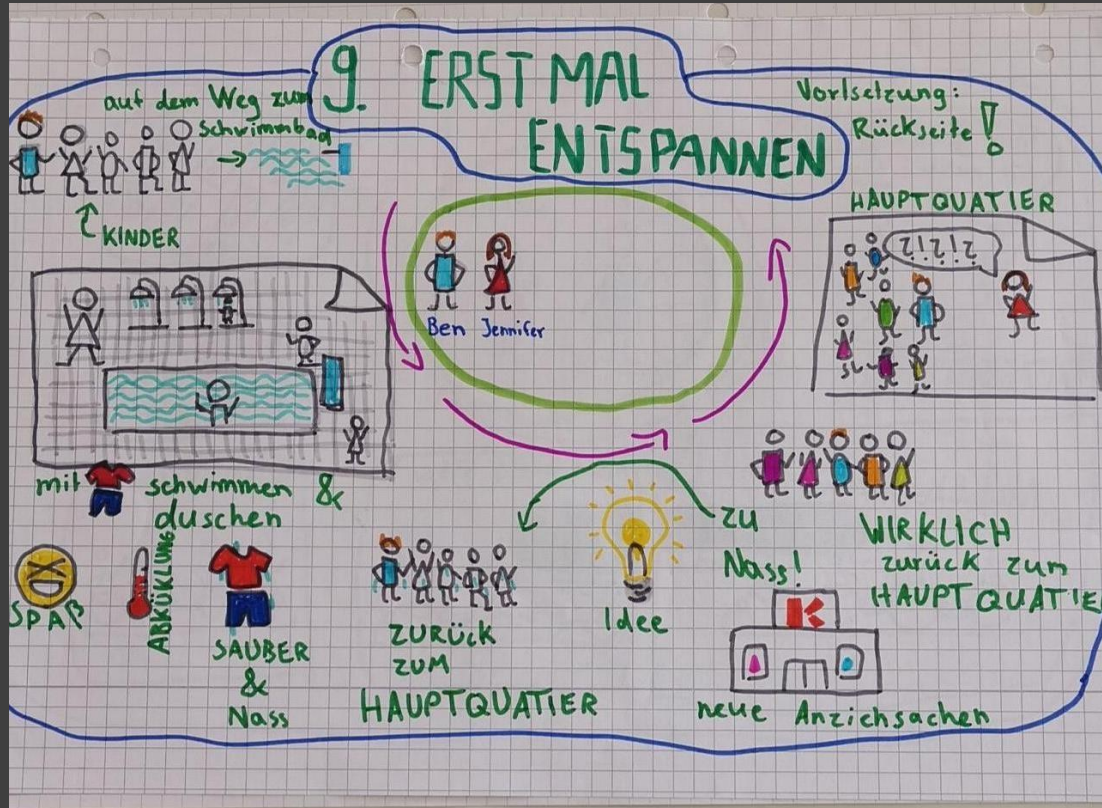 9. ERST MAL
ENTSPANNEN
auf dem Weg zum
Schwimmbad
KINDER
Vortsetzung:
Rückseite!
HAUPTQUATIER
?!?!?
Ben Jennifer
mit schwimmen &
duschen
SPAß
ABKÜKLUNG
SAUBER
&
Nass
ZURÜCK
ZUM
HAUPTQUATIER
Idee
zu
Nass!
K
neue Anziehsachen
WIRKLICH
zurück zum
HAUPTQUATIE